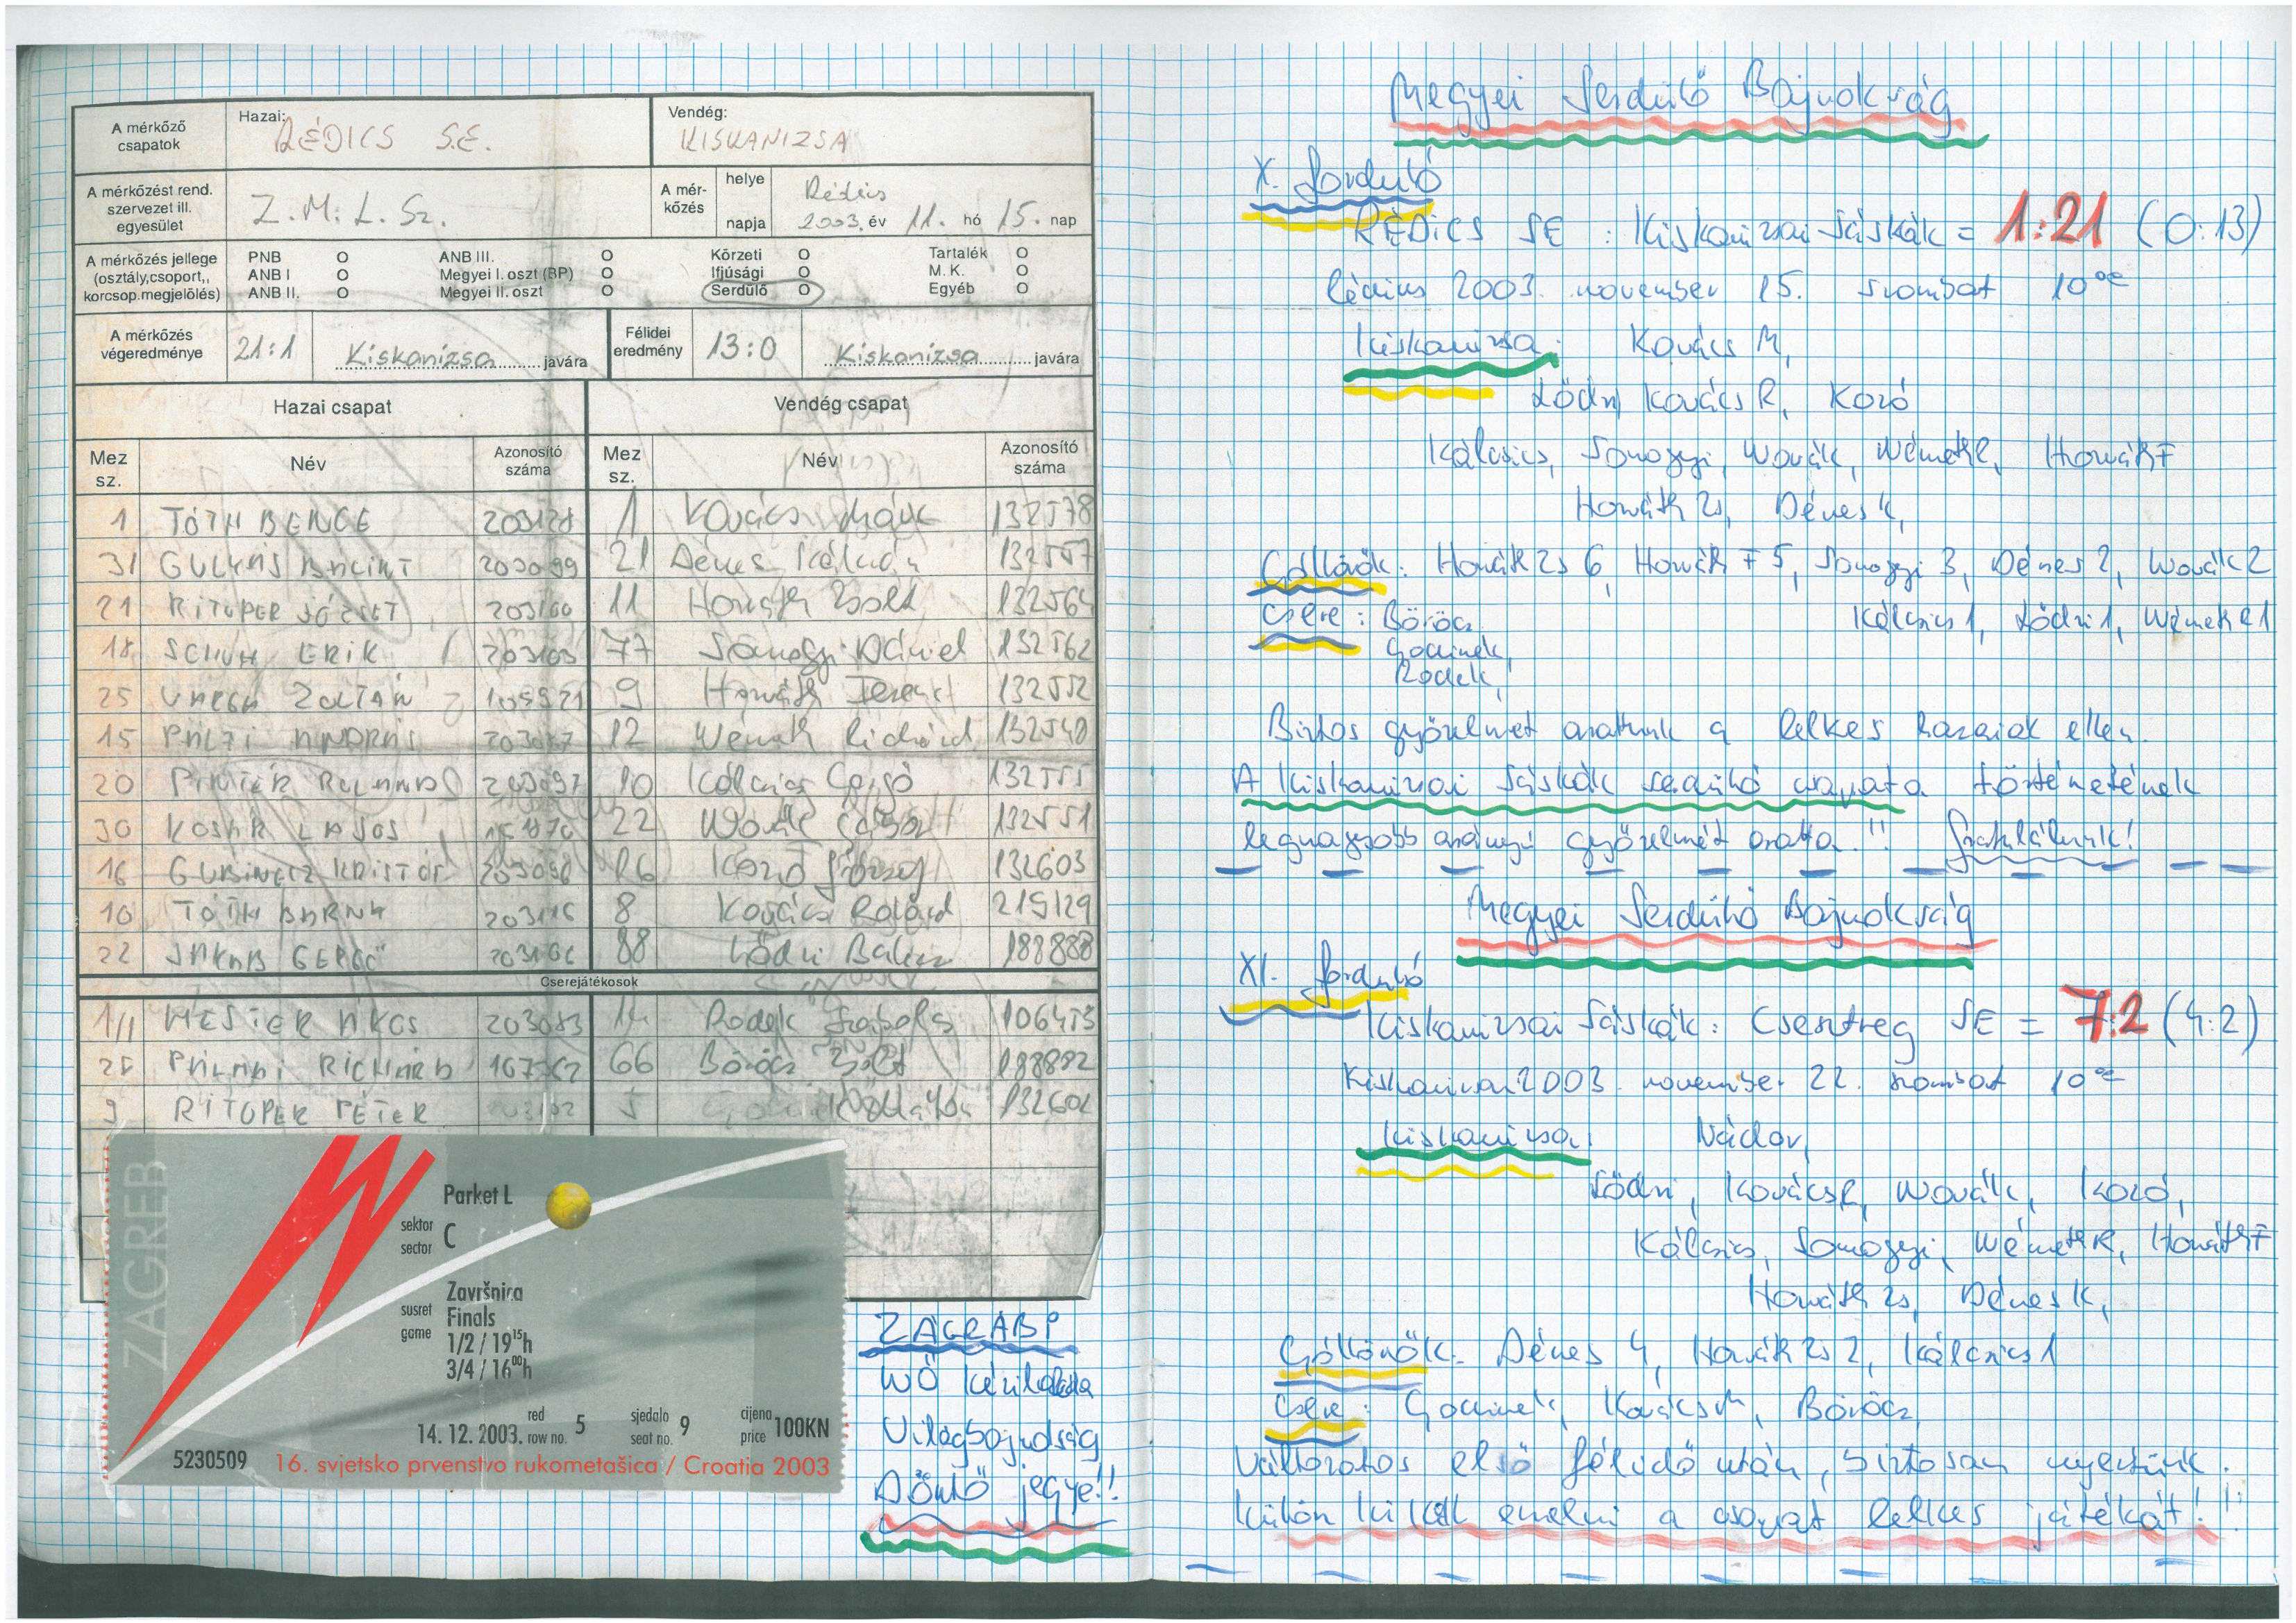 A mérkőző csapatok
Hazai: RÉDICS S.E.
Vendég: KISKANIZSA
A mérkőzést rend. szervezet ill. egyesület
Z.M.L.Sz.
A mér-kőzés
helye Rédics
napja 2003. év 11. hó 15. nap
A mérkőzés jellege (osztály,csoport,, korcsop.megjelölés)
PNB O ANB III. O Körzeti O Tartalék O
ANB I O Megyei I. oszt (BP) O Ifjúsági O M. K. O
ANB II. O Megyei II. oszt O Serdülő O Egyéb O
A mérkőzés végeredménye 21:1 Kiskanizsa javára
Félidei eredmény 13:0 Kiskanizsa javára
Hazai csapat Vendég csapat
Mez sz. Név Azonosító száma Mez sz. Név Azonosító száma
1 TÓTH BENCE 203121 1 Kovács Márk 132578
31 GULYÁS BÁLINT 203099 21 Dénes Kálmán 132557
21 RITUPER JÓZSEF 203100 11 Horváth Zsolt 132564
18 SCHUH ERIK 203103 77 Somogyi Dániel 132562
25 VARGA ZOLTÁN 9 Horváth Ferenc 132552
15 PÁLFI ANDRÁS 12 Németh Richárd 132540
20 PINTÉR ROLAND 10 Kálcsics Gergő 132555
30 KOSÁR LAJOS 22 Novák 132551
16 KRISTÓF 16 Kozó József 132603
10 TÓTH BARNA 8 Kovács Roland 219129
22 JAKAB GERGŐ 88 Lődri Balázs 188888
Cserejátékosok
1/1 ÁKOS 203083 14 Rodek Szabolcs 106453
RICHÁRD 66 Böröcz Zsolt 188882
9 RITUPER PÉTER 5
ZAGREB
Parket L
sektor
sector C
susret
game
Završnica
Finals
1/2 / 19¹⁵h
3/4 / 16⁰⁰h
14.12.2003. red row no. 5 sjedalo seat no. 9 cijena price 100KN
5230509 16. svjetsko prvenstvo rukometašica / Croatia 2003
ZÁGRÁB!
NŐ Kézilabda
Világbajnokság
Döntő jegye!!
Megyei Serdülő Bajnokság
X. forduló
RÉDICS SE : Kiskanizsai Sáskák = 1:21 (0:13)
Rédics 2003. november 15. szombat 10⁰⁰
Kiskanizsa: Kovács M,
Lődri, Kovács R, Kozó
Kálcsics, Somogyi, Novák, Németh R, Horváth F
Horváth Zs, Dénes K,
Góllövők: Horváth Zs 6, Horváth F 5, Somogyi 3, Dénes 2, Novák 2
Kálcsics 1, Lődri 1, Németh R 1
Csere: Böröcz
Rodek,
Biztos győzelmet arattunk a lelkes hazaiak ellen.
A Kiskanizsai Sáskák serdülő csapata történetének
legnagyobb arányú győzelmét aratta!!! Gratulálunk!
Megyei Serdülő Bajnokság
XI. forduló
Kiskanizsai Sáskák : Csesztreg SE = 7:2 (4:2)
Kiskanizsa 2003. november 22. szombat 10⁰⁰
Kiskanizsa: Nádor,
Lődri, Kovács R, Novák, Kozó,
Kálcsics, Somogyi, Németh R, Horváth F
Horváth Zs, Dénes K,
Góllövők: Dénes 4, Horváth Zs 2, Kálcsics 1
Csere: Kovács M, Böröcz,
Változatos első félidő után, biztosan nyertünk.
Külön ki kell emelni a csapat lelkes játékát!!!